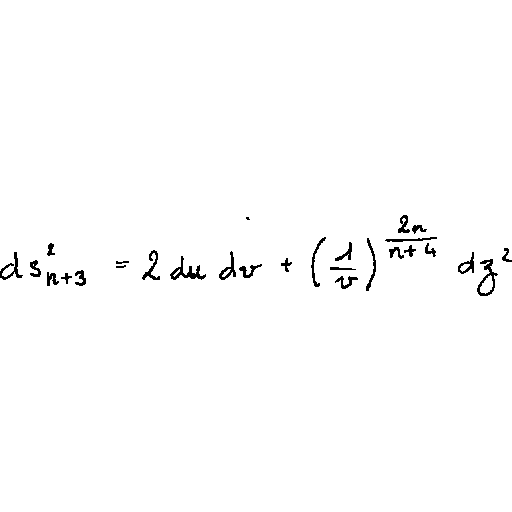 ds_{n+3}^{2} = 2 du dv + (\frac{1}{v})^{\frac{2n}{n+4}} dz^{2}